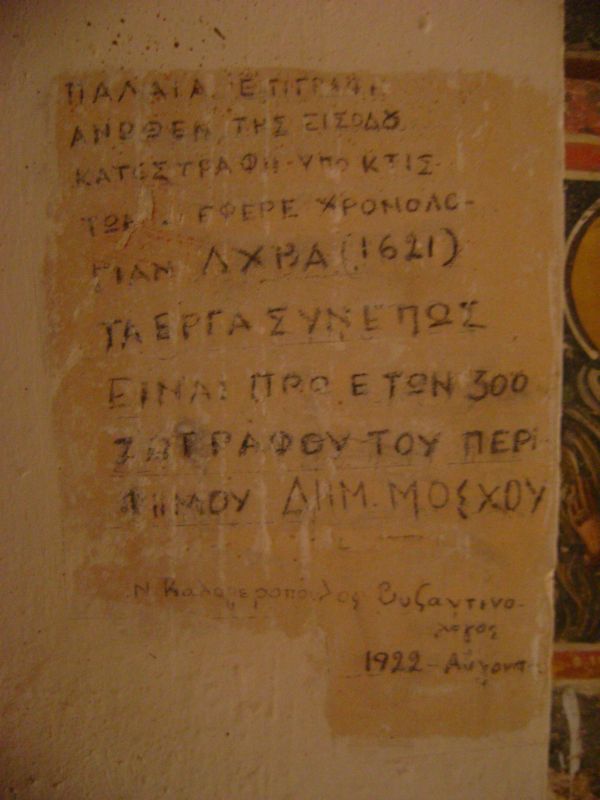 ΠΑΛΑΙΑ ΕΠΙΓΡΑΦΗ
ΑΝΩΘΕΝ ΤΗΣ ΕΙΣΟΔΟΥ
ΚΑΤΕΣΤΡΑΦΗ ΥΠΟ ΚΤΙΣ
ΤΩΝ. ΕΦΕΡΕ ΧΡΟΝΟΛΟ-
ΓΙΑΝ ΑΧΒΑ (1621)
ΤΑ ΕΡΓΑ ΣΥΝΕΠΩΣ
ΕΙΝΑΙ ΠΡΟ ΕΤΩΝ 300
ΖΩΓΡΑΦΟΥ ΤΟΥ ΠΕΡΙ
ΦΗΜΟΥ ΔΗΜ. ΜΟΣΧΟΥ
Ν Καλογερόπουλος Βυζαντινο-
λόγος
1922 - Αύγουστ